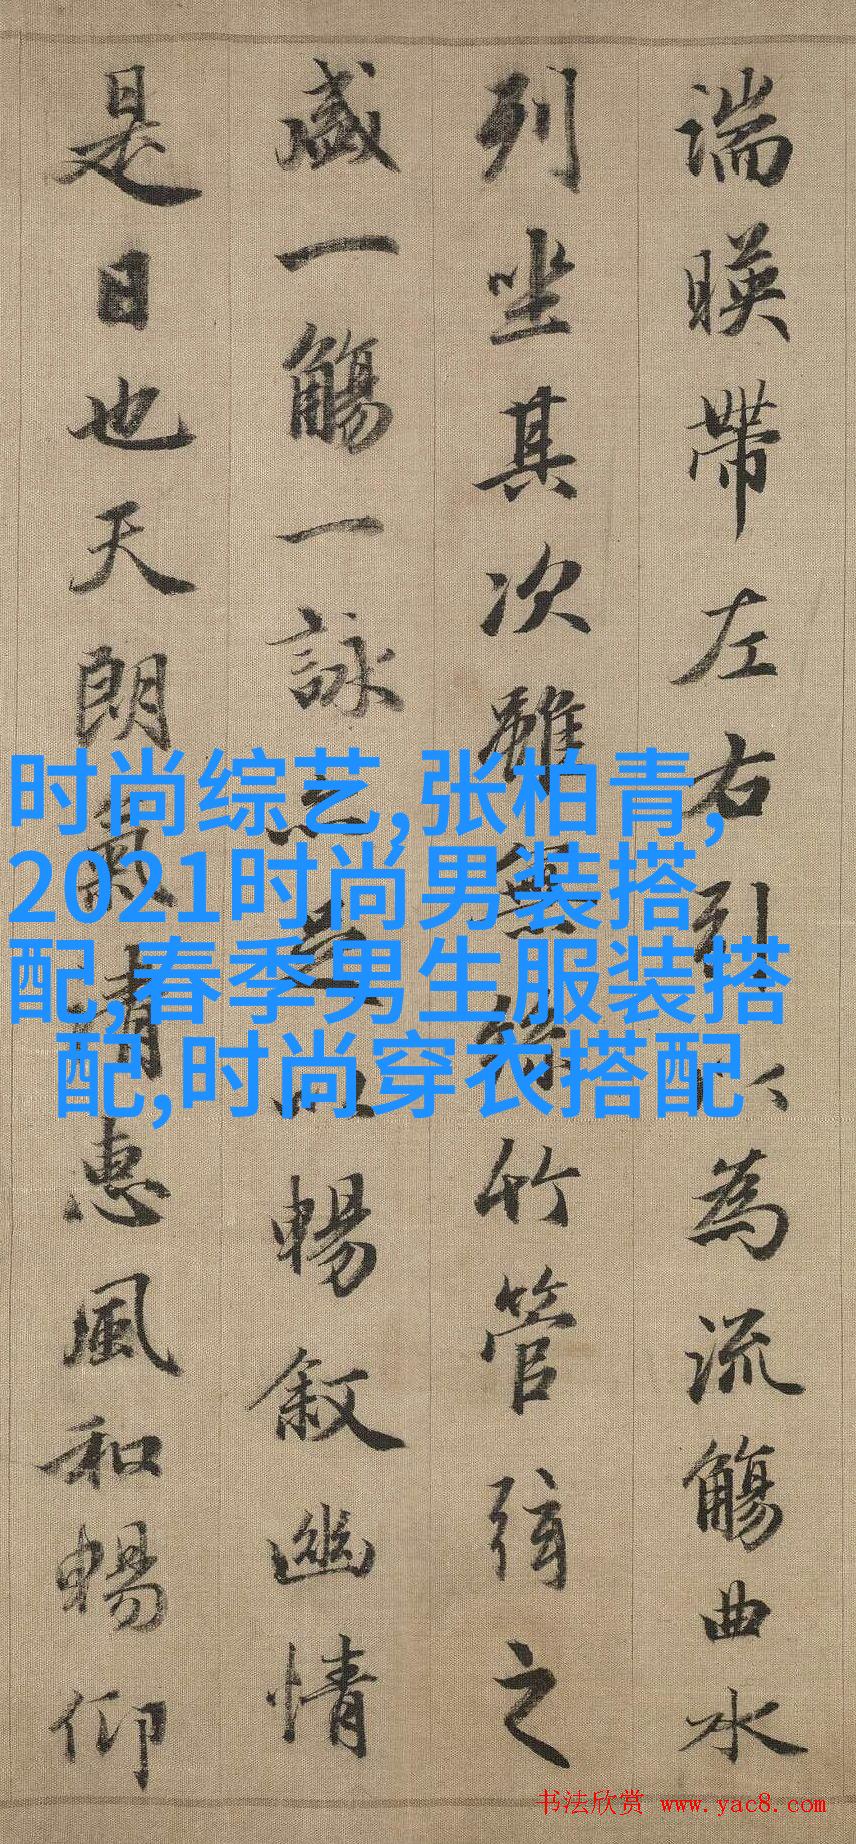 湍暎帶左右引以為流觴曲水
列坐其次雖無絲竹管弦之
盛一觴一詠亦足以暢敘幽情
是日也天朗氣清惠風和暢仰
时尚综艺,张柏青,
2021时尚男装搭
配,春季男生服装搭
配,时尚穿衣搭配
书法欣赏 www.yac8.com